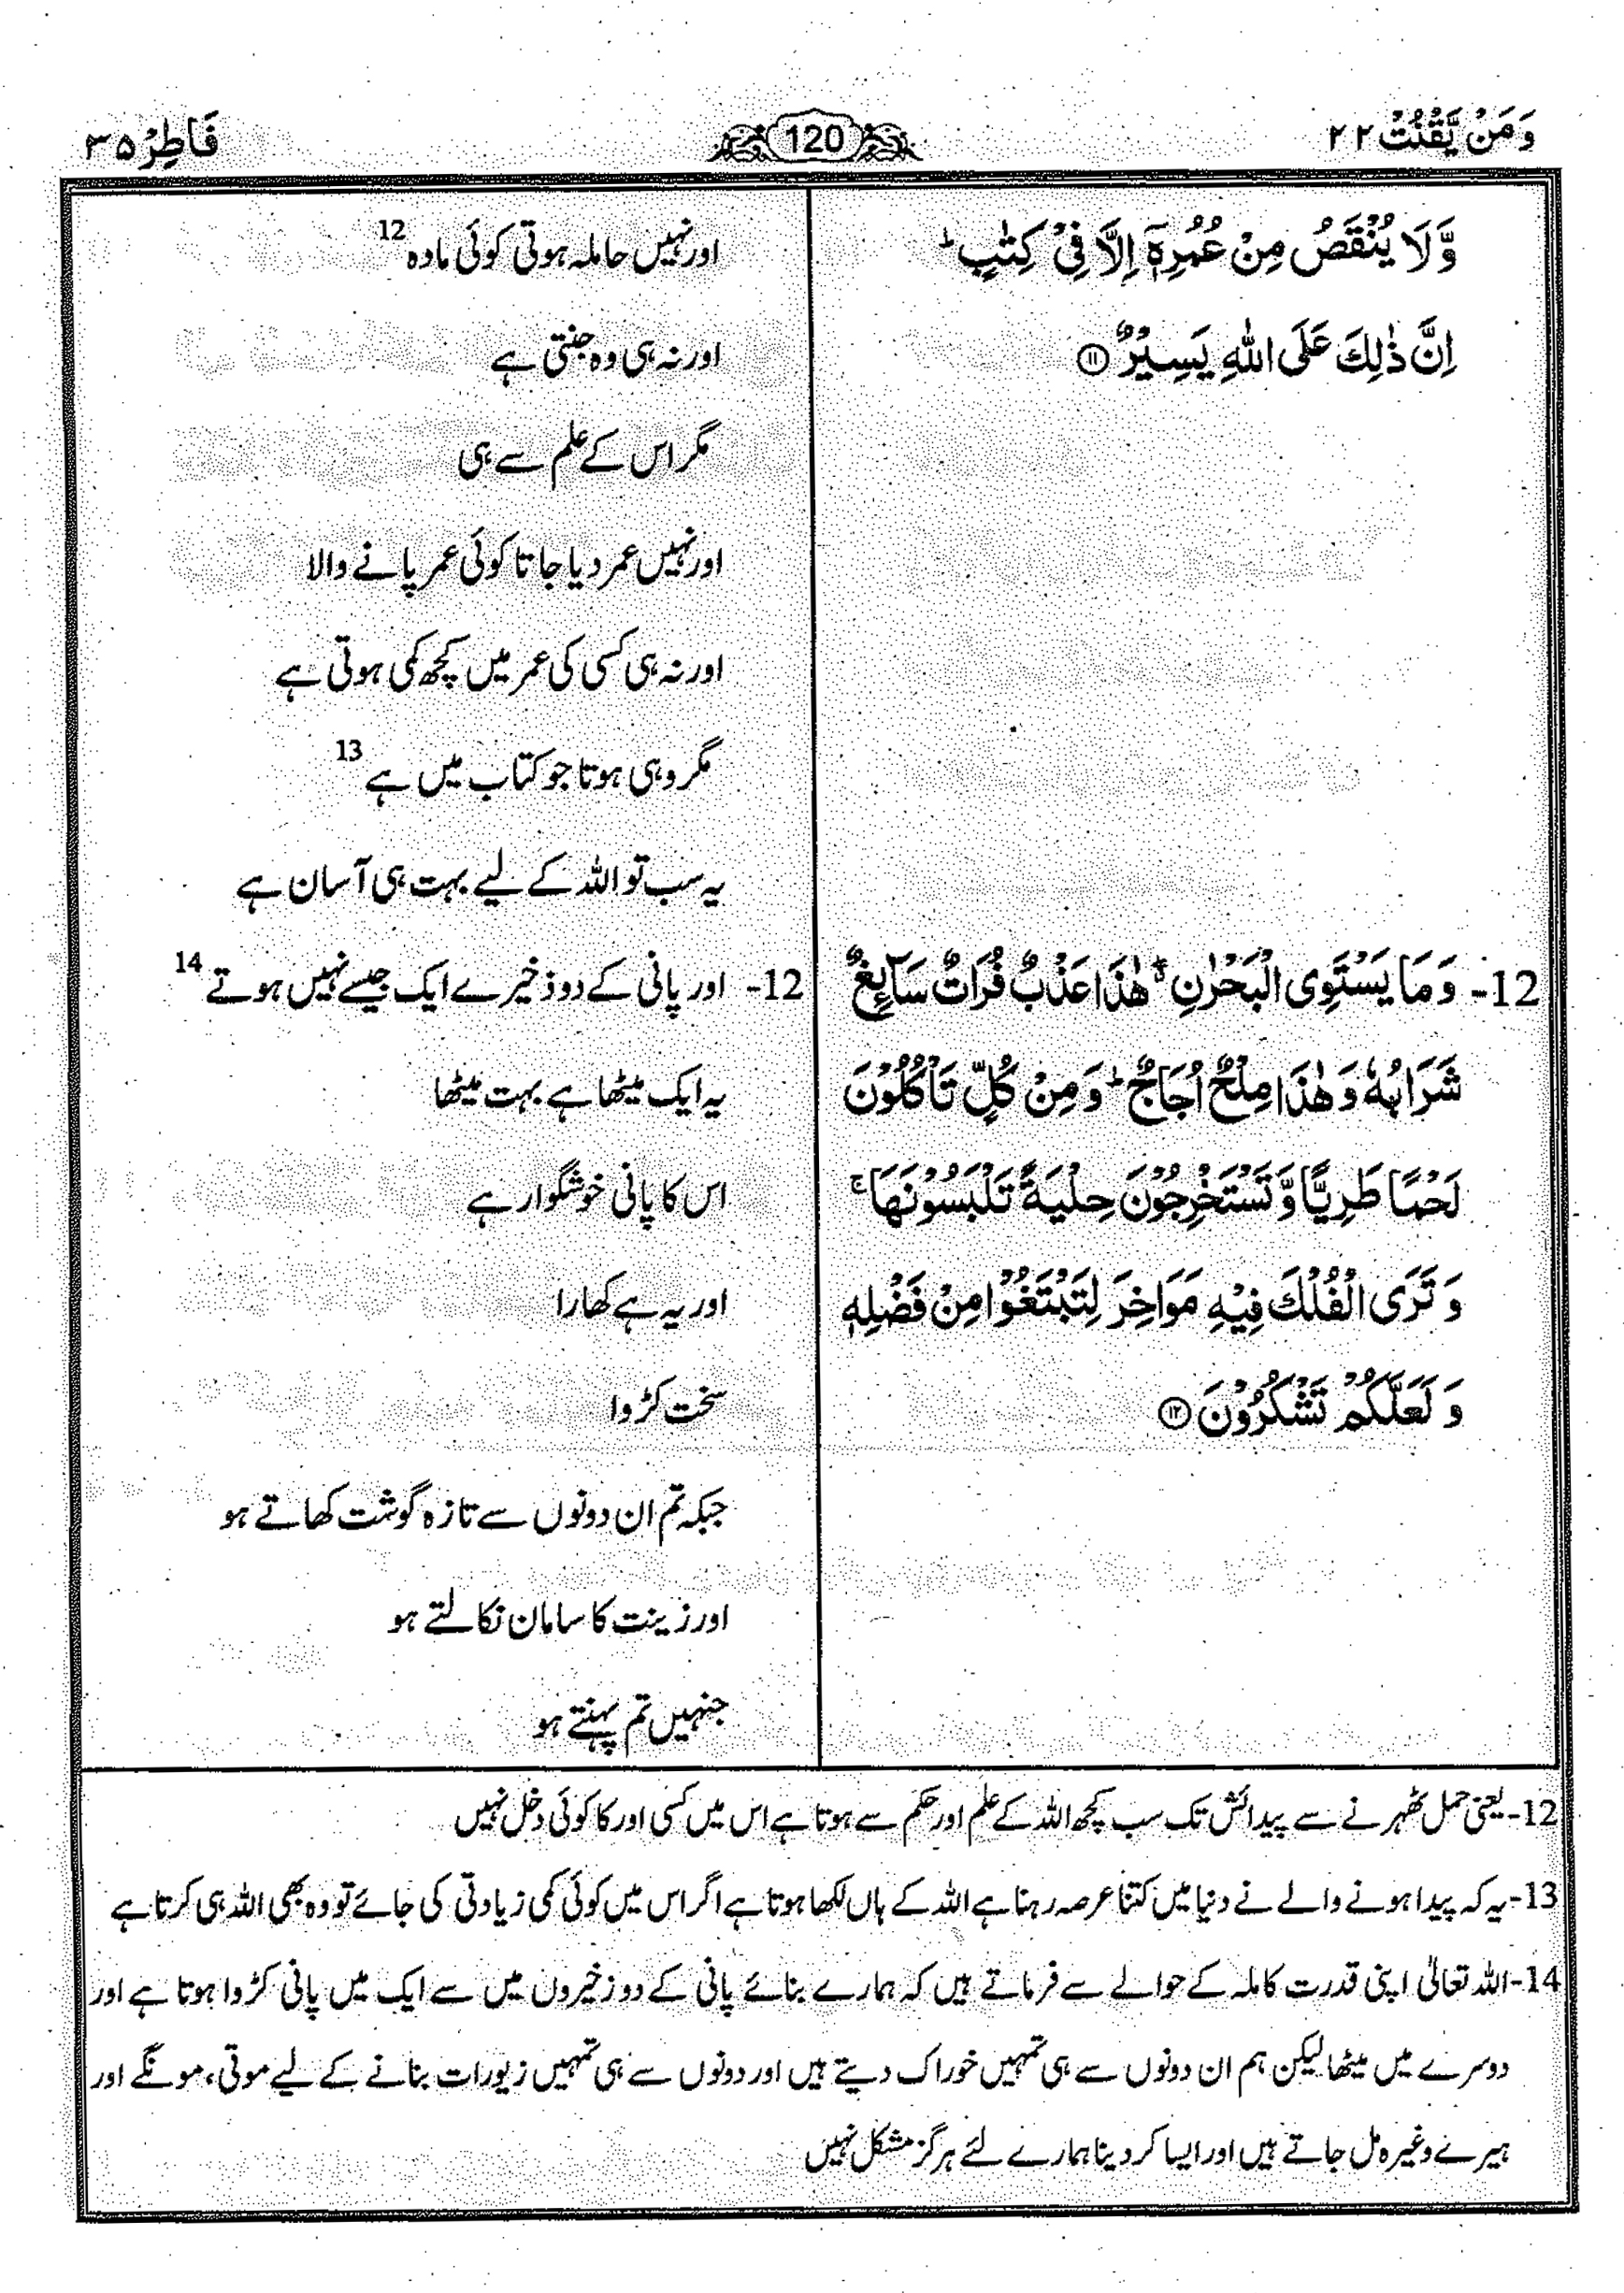 وَمَنْ يَّقْنُتْ ٢٢
120
فَاطِرْ ٣٥
وَّلَا يُنْقَصُ مِنْ عُمُرِهٖٓ اِلَّا فِیْ كِتٰبٍ ؕ
اِنَّ ذٰلِكَ عَلَی اللّٰهِ یَسِیْرٌ ۝۱۱
12- وَمَا یَسْتَوِی الْبَحْرٰنِ ۖ هٰذَا عَذْبٌ فُرَاتٌ سَآئِغٌ
شَرَابُهٗ وَهٰذَا مِلْحٌ اُجَاجٌ ؕ وَمِنْ كُلٍّ تَاْكُلُوْنَ
لَحْمًا طَرِیًّا وَّتَسْتَخْرِجُوْنَ حِلْیَةً تَلْبَسُوْنَهَا ۚ
وَتَرَی الْفُلْكَ فِیْهِ مَوَاخِرَ لِتَبْتَغُوْا مِنْ فَضْلِهٖ
وَلَعَلَّكُمْ تَشْكُرُوْنَ ۝۱۲
اور نہیں حاملہ ہوتی کوئی مادہ 12
اور نہ ہی وہ جنتی ہے
مگر اس کے علم سے ہی
اور نہیں عمر دیا جاتا کوئی عمر پانے والا
اور نہ ہی کسی کی عمر میں کچھ کمی ہوتی ہے
مگر وہی ہوتا جو کتاب میں ہے 13
یہ سب تو اللہ کے لیے بہت ہی آسان ہے
12- اور پانی کے دو ذخیرے ایک جیسے نہیں ہوتے 14
یہ ایک میٹھا ہے بہت میٹھا
اس کا پانی خوشگوار ہے
اور یہ ہے کھارا
سخت کڑوا
جبکہ تم ان دونوں سے تازہ گوشت کھاتے ہو
اور زینت کا سامان نکالتے ہو
جنہیں تم پہنتے ہو
12- یعنی حمل ٹھہرنے سے پیدائش تک سب کچھ اللہ کے علم اور حکم سے ہوتا ہے اس میں کسی اور کا کوئی دخل نہیں
13- یہ کہ پیدا ہونے والے نے دنیا میں کتنا عرصہ رہنا ہے اللہ کے ہاں لکھا ہوتا ہے اگر اس میں کوئی کمی زیادتی کی جائے تو وہ بھی اللہ ہی کرتا ہے
14- اللہ تعالیٰ اپنی قدرت کاملہ کے حوالے سے فرماتے ہیں کہ ہمارے بنائے پانی کے دو زخیروں میں سے ایک میں پانی کڑوا ہوتا ہے اور
دوسرے میں میٹھا لیکن ہم ان دونوں سے ہی تمہیں خوراک دیتے ہیں اور دونوں سے ہی تمہیں زیورات بنانے کے لیے موتی، مونگے اور
ہیرے وغیرہ مل جاتے ہیں اور ایسا کر دینا ہمارے لئے ہرگز مشکل نہیں